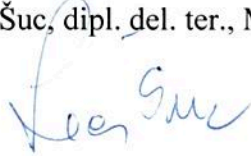 Šuc, dipl. del. ter., 
Lea Šuc